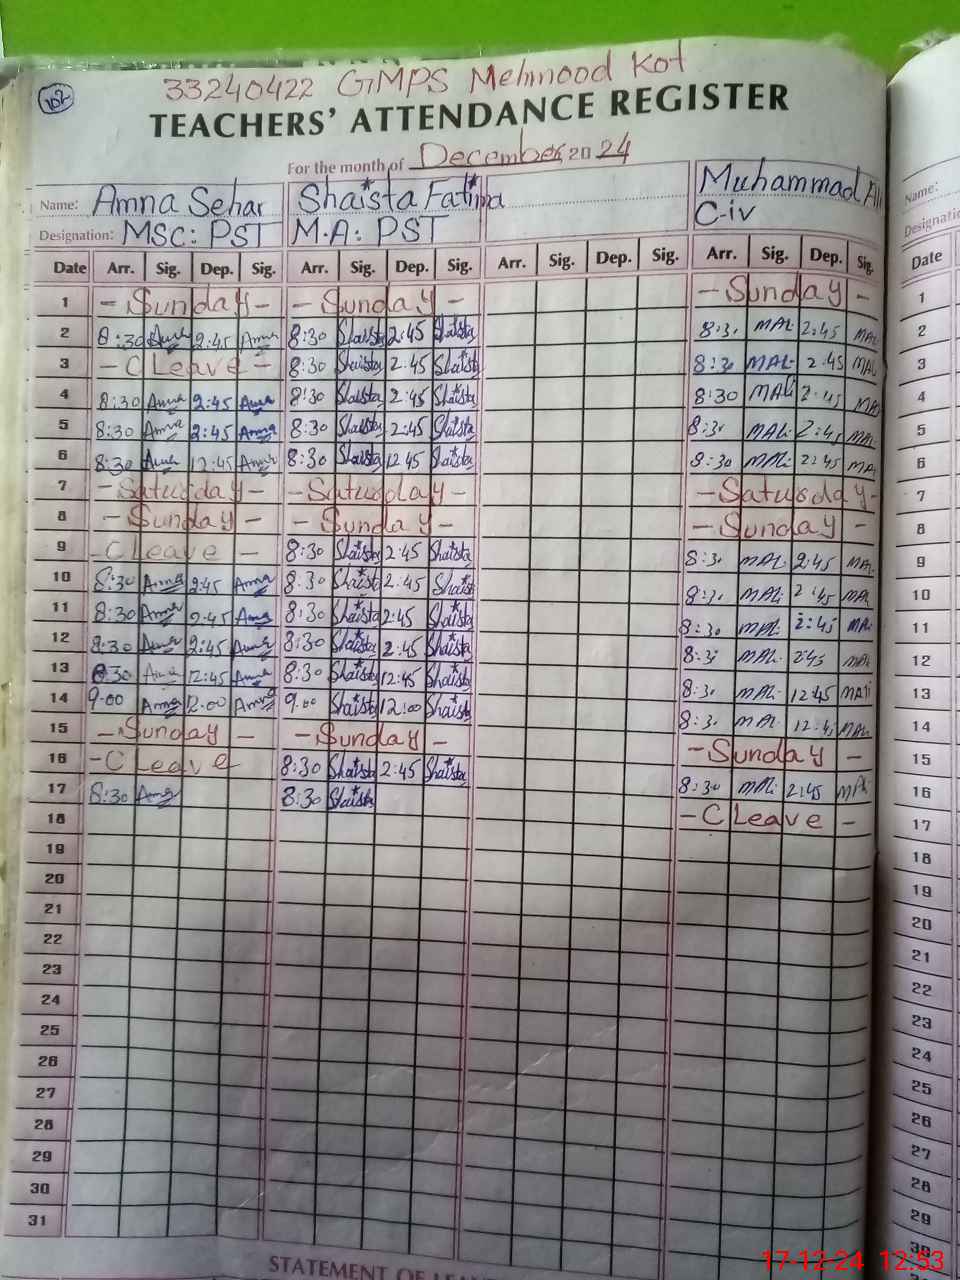 102
33240422 GMPS Mehmood Kot
TEACHERS' ATTENDANCE REGISTER
For the month of December, 2024
Name: Amna Sehar Shaista Fatima Muhammad Ali Name:
Designation: MSC: PST M.A: PST C-iv Designatio
Date Arr. Sig. Dep. Sig. Arr. Sig. Dep. Sig. Arr. Sig. Dep. Sig. Arr. Sig. Dep. Sig. Date
1 - Sunday - - Sunday - - Sunday - 1
2 8:30 Amna 2:45 Amna 8:30 Shaista 2:45 Shaista 8:3. MAL 2:45 MAL 2
3 - C Leave - 8:30 Shaista 2:45 Shaista 8:30 MAL 2:45 MAL 3
4 8:30 Amna 2:45 Amna 8:30 Shaista 2:45 Shaista 8:30 MAL 2:45 MAL 4
5 8:30 Amna 2:45 Amna 8:30 Shaista 2:45 Shaista 8:3. MAL 2:45 MAL 5
6 8:30 Amna 12:45 Amna 8:30 Shaista 12:45 Shaista 8:30 MAL 2:45 MAL 6
7 - Saturday - - Saturday - - Saturday - 7
8 - Sunday - - Sunday - - Sunday - 8
9 - C Leave - 8:30 Shaista 2:45 Shaista 8:3. MAL 2:45 MAL 9
10 8:30 Amna 2:45 Amna 8:30 Shaista 2:45 Shaista 8:3. MAL 2:45 MAL 10
11 8:30 Amna 2:45 Amna 8:30 Shaista 2:45 Shaista 8:30 MAL 2:45 MAL 11
12 8:30 Amna 2:45 Amna 8:30 Shaista 2:45 Shaista 8:3. MAL 2:45 MAL 12
13 8:30 Amna 12:45 Amna 8:30 Shaista 12:45 Shaista 8:3. MAL 12:45 MALi 13
14 9:00 Amna 12:00 Amna 9:00 Shaista 12:00 Shaista 8:3. MAL 12:45 MAL 14
15 - Sunday - - Sunday - - Sunday - 15
16 - C Leave 8:30 Shaista 2:45 Shaista 8:30 MAL 2:45 MAL 16
17 8:30 Amna 8:30 Shaista - C Leave - 17
18 18
19 19
20 20
21 21
22 22
23 23
24 24
25 25
26 26
27 27
28 28
29 29
30 30
31
STATEMENT OF LEA
17-12-24 12:53